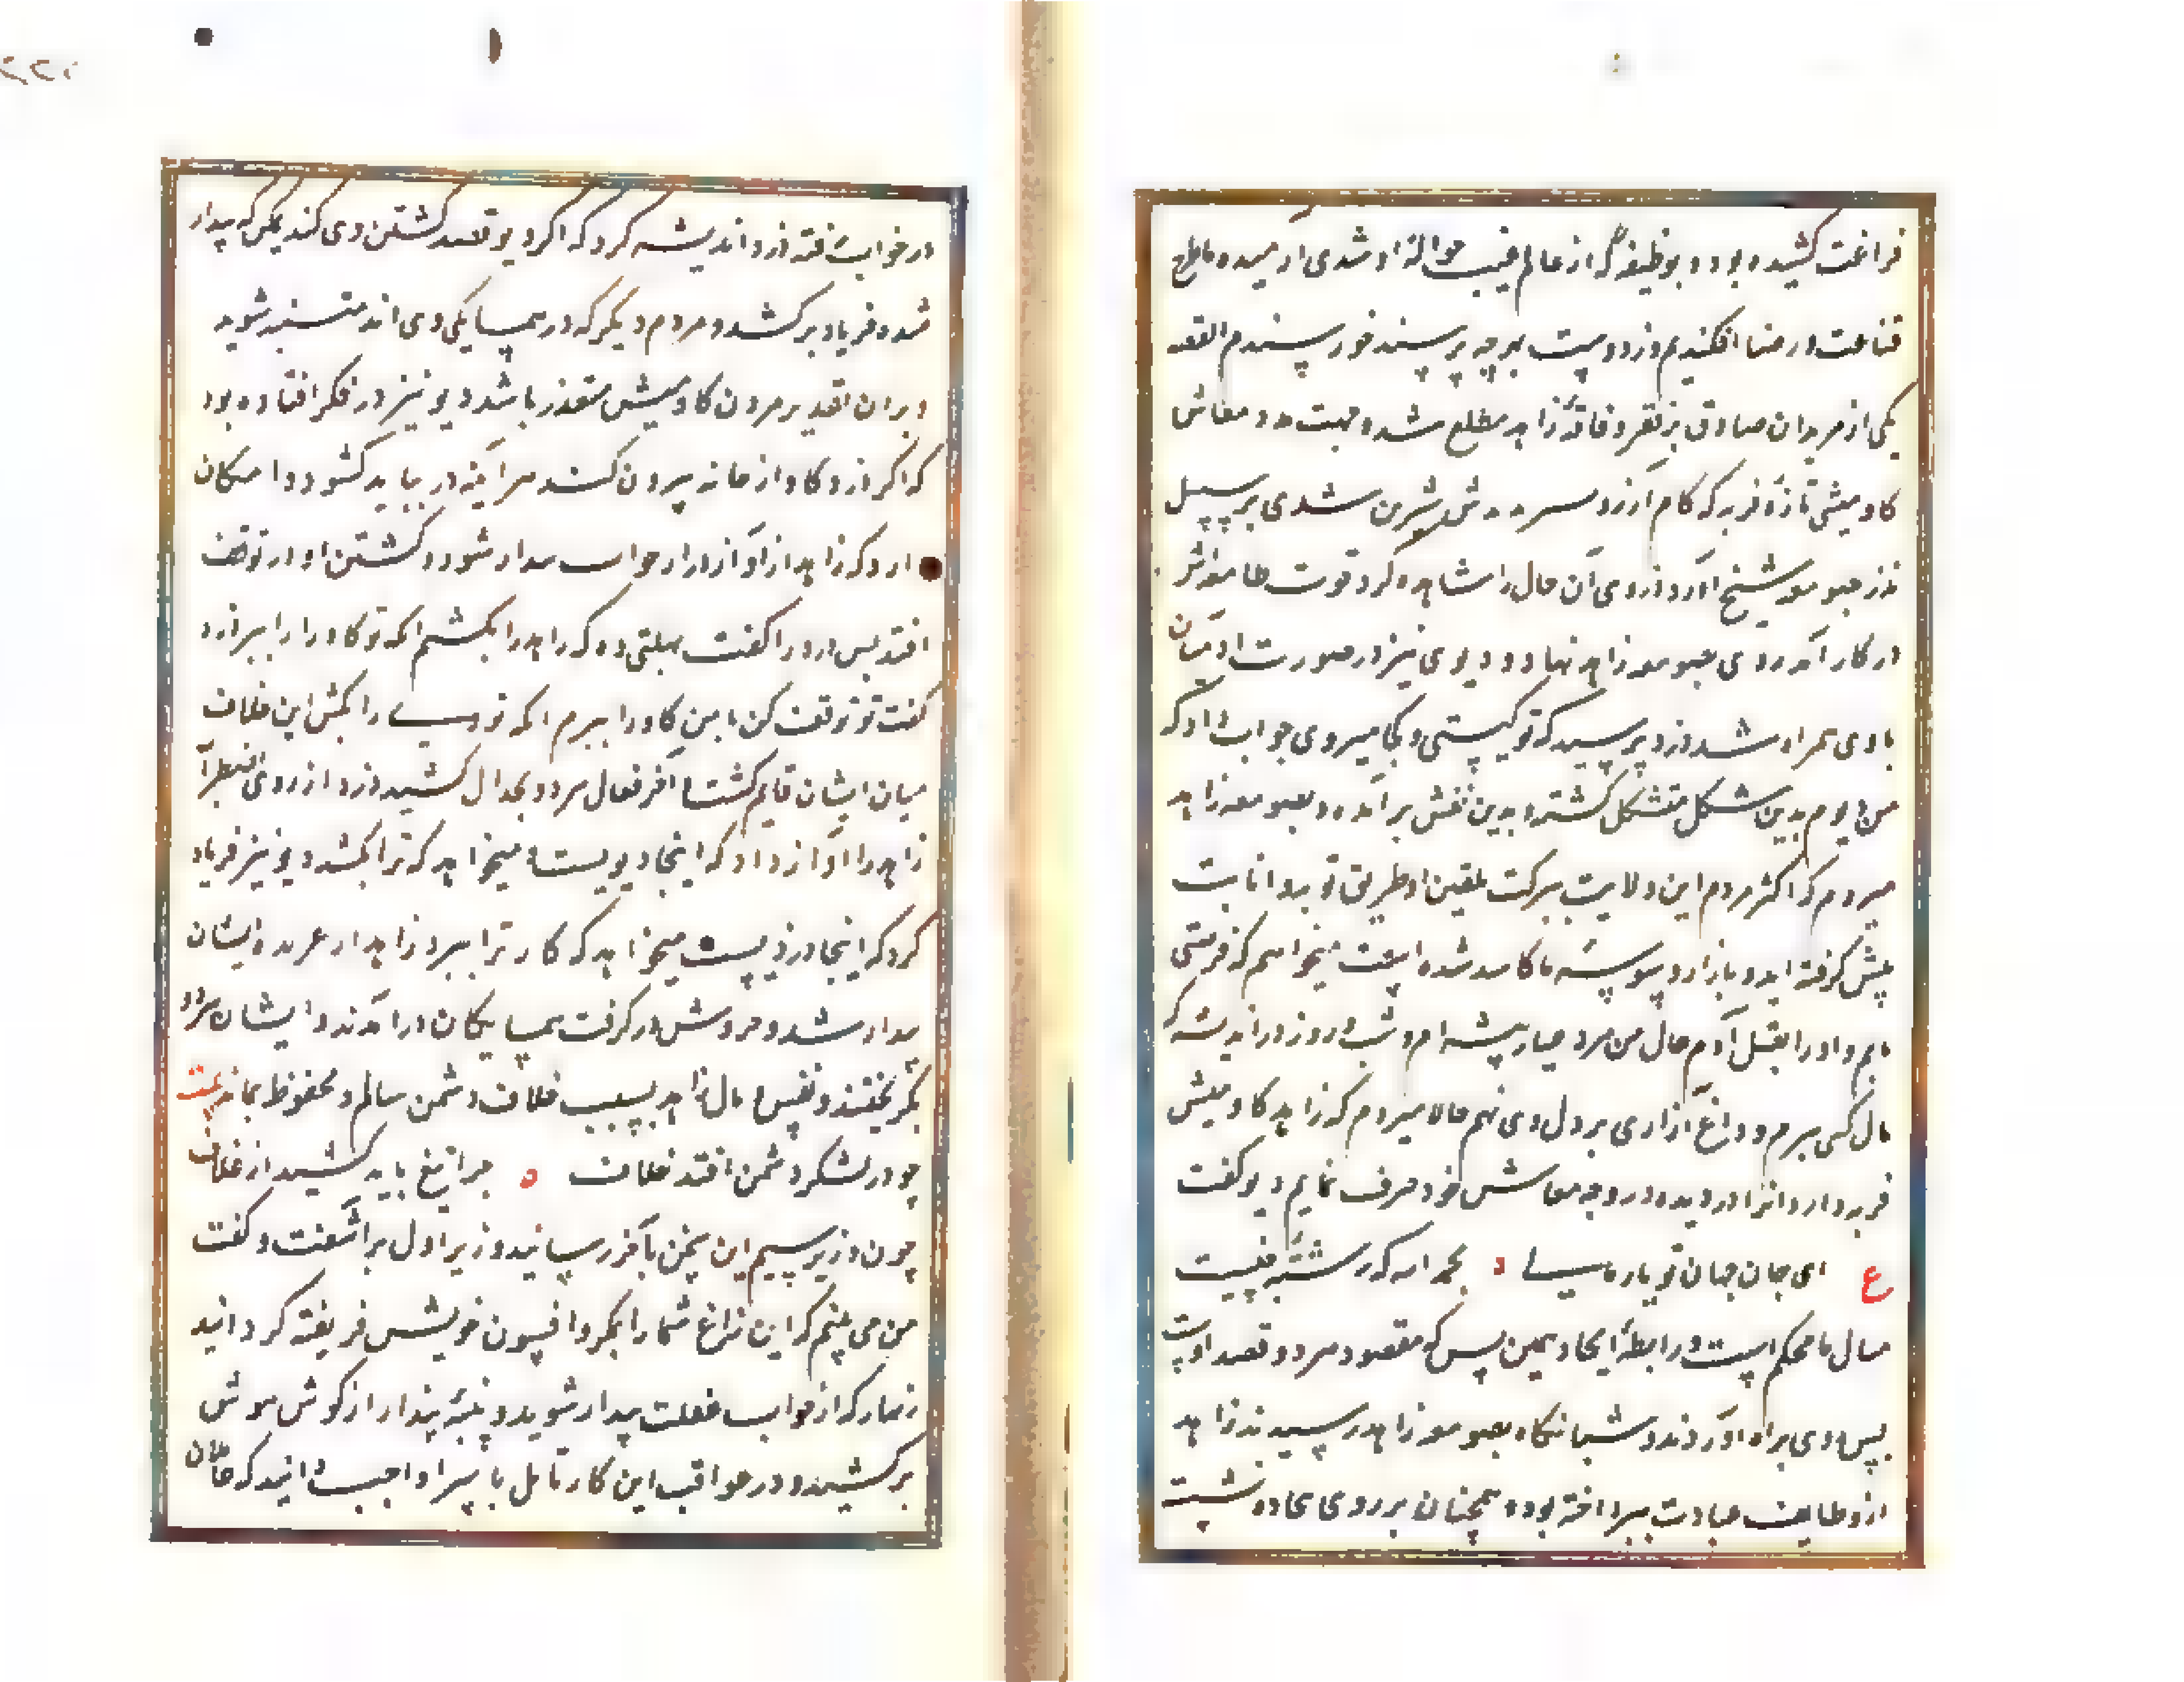 فراغت کشیده بود و بوظیفه که از عالم غیب حواله او شدی آرمیده ما طرح
قناعت و رضا افکندیم و ز دوست بهر چه پرسند خورسندم القصه
یکی از مریدان صادق بر فقر و فاقه زاهد مطلع شد و جهت معاش
کاومیشی تازه فربه که کام آرزو شیرین شدی بر سبیل
نذر بصومعه شیخ آورد دزدی آن حال را مشاهده کرد قوت طامعه‌اش
در کار آمد روی بصومعه زاهد نهاد و دیوی نیز در صورت آدمیان
با وی همراه شد دزد پرسید که تو کیستی و کجا میروی جواب داد که
من دیوم بدین شکل متشکل کشته و بدین نقش برآمده و بصومعه زاهد
میروم که اکثر مردم این ولایت ببرکت تلقین او طریق توبه و انابت
پیش کرفته اند و بازار وسوسه ما کاسد شده است میخواهم که فرصتی
یابم و او را بقتل آرم حال من مرد عیار پیشه ام و شب و روز در اندیشه که
مال کسی ببرم و داغ آزاری بر دل وی نهم حالا میروم که زاهد کاومیش
فربه دارد آنرا دزدیده در وجه معاش خود صرف نمایم دیو کفت
ع ای جان جهان تو یار مایی بحمد الله که رشته جنسیت
میان ما محکم است و رابطه اتحاد همین بس که مقصود هر دو قصد اوست
پس روی براه آوردند و شبانکاه بصومعه زاهد رسیدند زاهد
از وظایف عبادت بپرداخته بود و همچنان بر روی سجاده نشست
در خواب رفته دزد اندیشه کرد که اکر دیو قصد کشتن وی کند یمکن که بیدار
شده فریاد برکشد و مردم دیکر که در همسایکی وی اند متنبه شوند
و بران تقدیر بردن کاومیش متعذر باشد دیو نیز در فکر افتاده بود
که اکر دزد کاو از خانه بیرون کند هر آینه در بباید کشود و امکان
دارد که زاهد از آواز در از خواب بیدار شود و کشتن او در توقف
افتد پس دزد را کفت مهلتی ده که زاهد را بکشم آنکه تو کاو را ببر دزد
کفت تو توقف کن تا من کاو را ببرم آنکه تو وی را بکش این خلاف
میان ایشان قایم کشت تا آخر فعال هر دو بجدال کشید دزد از روی اضطراب
زاهد را آواز داد که اینجا دیویست و میخواهد که ترا بکشد دیو نیز فریاد
کرد که اینجا دزدیست میخواهد که کاو ترا ببرد زاهد از عربده ایشان
بیدار شد و خروش در کرفت همسایکان درآمدند و ایشان هر دو
بکریختند و نفس و مال زاهد بسبب خلاف دشمن سالم و محفوظ بماند بیت
چو در لشکر دشمن افتد خلاف ه چرا تیغ باید کشید از غلاف
چون وزیر سیم این سخن بآخر رسانید وزیر اول برآشفت و کفت
من می بینم که این زاغ شما را بمکر و افسون خویش فریفته کردانید
زنهار که از خواب غفلت بیدار شوید و پنبه پندار از کوش هوش
برکشید و در عواقب این کار تامل بسزا واجب دانید که عاقلان